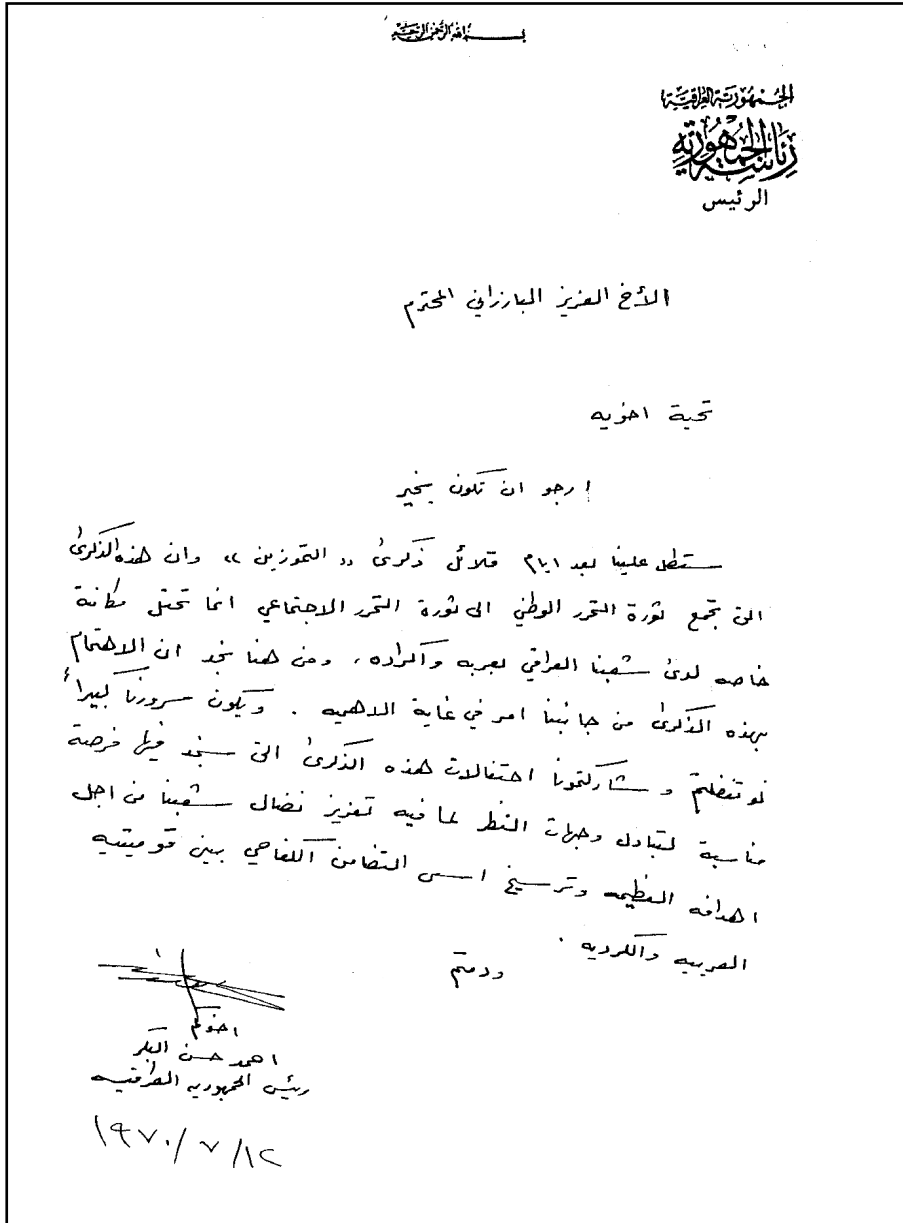 بسم الله الرحمن الرحيم
الجمهورية العراقية
رئاسة الجمهورية
الرئيس
الأخ العزيز البارزاني المحترم
تحية اخويه
ارجو ان تكون بخير
ستطل علينا بعد ايام قلائل ذكرى «التموزين» وان هذه الذكرى
التي تجمع ثورة التحرر الوطني الى ثورة التحرر الاجتماعي انما تحتل مكانة
خاصه لدى شعبنا العراقي بعربه واكراده، ومن هنا نجد ان الاهتمام
بهذه الذكرى من جانبنا امر في غاية الاهميه . ويكون سرورنا كبيراً
لو تفضلتم وشاركتمونا احتفالات هذه الذكرى التي سنجد فيها فرصة
مناسبة لتبادل وجهات النظر لما فيه تعزيز نضال شعبنا من اجل
اهدافه العظيمه وترسيخ اسس التضامن الكفاحي بين قوميتيه
العربيه والكرديه .
ودمتم
اخوكم
احمد حسن البكر
رئيس الجمهوريه العراقيه
١٩٧٠/٧/١٢